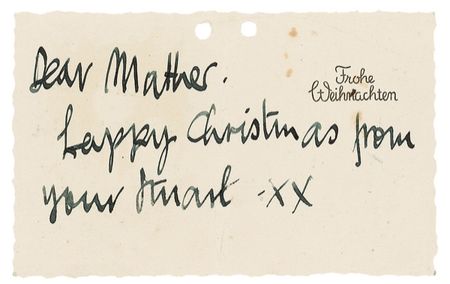 Dear Mother.
Frohe
Weihnachten
happy Christmas from
your Stuart -xx